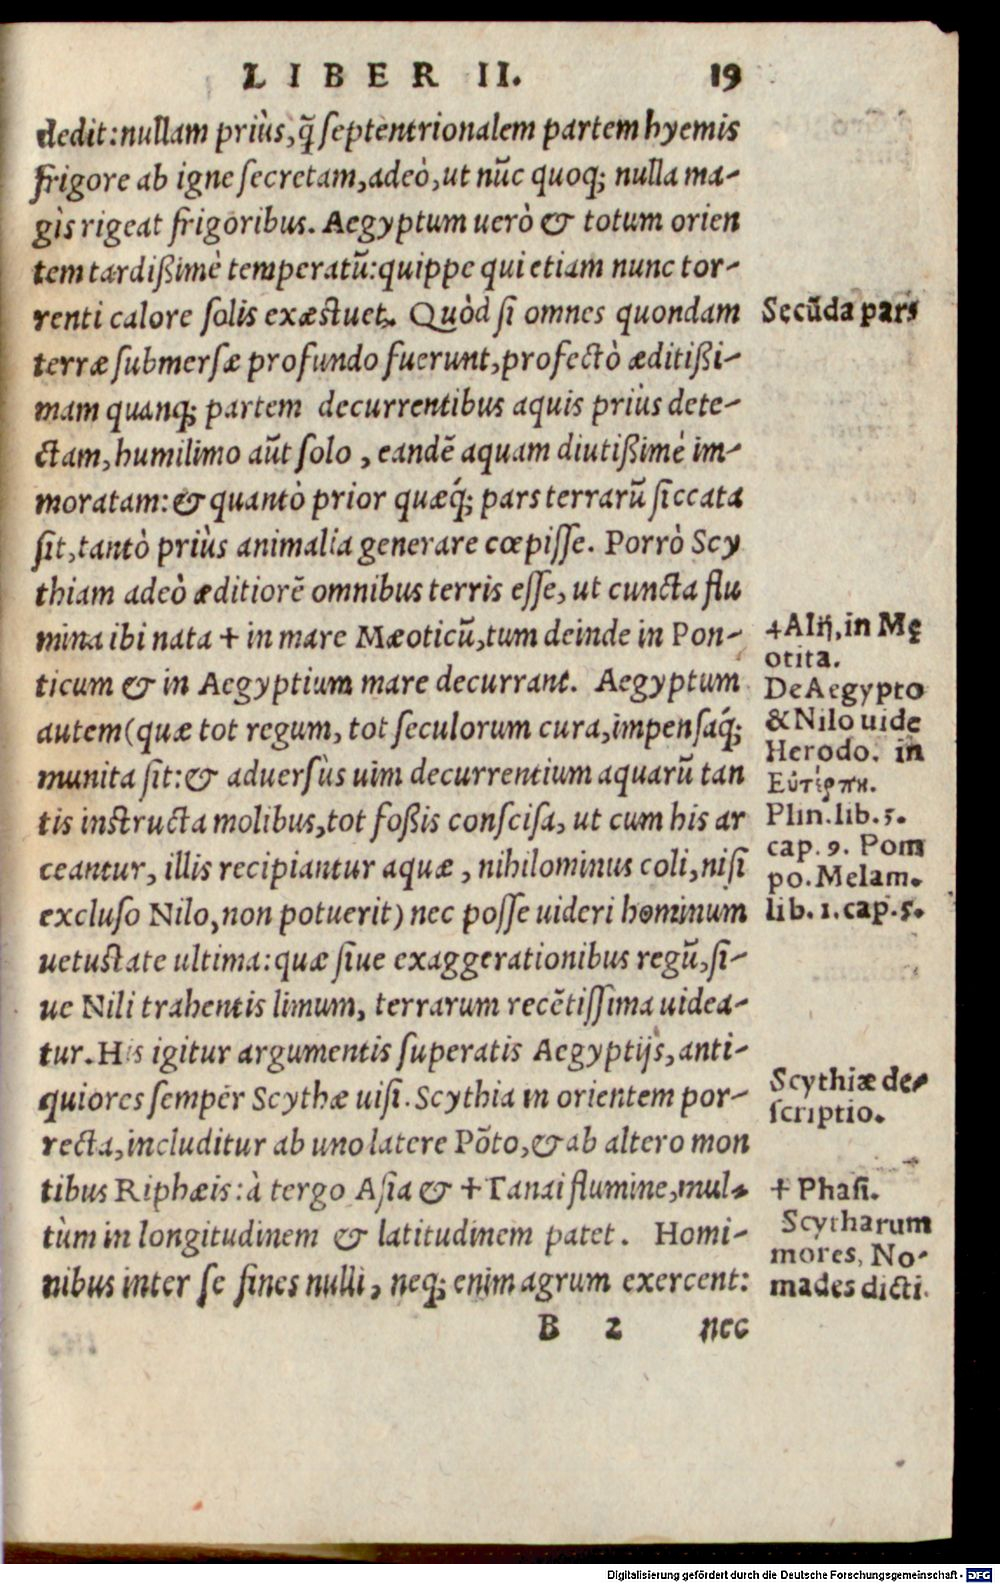 LIBER II. 19
dedit: nullam priùs, q̃ septentrionalem partem hyemis
frigore ab igne secretam, adeò, ut nũc quoq; nulla ma-
gìs rigeat frigoribus. Aegyptum uerò & totum orien
tem tardißimè temperatũ: quippe qui etiam nunc tor-
renti calore solis exæstuet. Quòd si omnes quondam
terræ submersæ profundo fuerunt, profectò æditißi-
mam quanq; partem decurrentibus aquis priùs dete-
ctam, humilimo aũt solo, eandẽ aquam diutißimè im-
moratam: & quantò prior quæq́; pars terrarũ siccata
sit, tantò priùs animalia generare cœpisse. Porrò Scy
thiam adeò æditiorẽ omnibus terris esse, ut cuncta flu
mina ibi nata + in mare Mæoticũ, tum deinde in Pon-
ticum & in Aegyptium mare decurrant. Aegyptum
autem (quæ tot regum, tot seculorum cura, impensaq́;
munita sit: & aduersùs uim decurrentium aquarũ tan
tis instructa molibus, tot foßis conscisa, ut cum his ar
ceantur, illis recipiantur aquæ, nihilominus coli, nisi
excluso Nilo, non potuerit) nec posse uideri hominum
uetustate ultima: quæ siue exaggerationibus regũ, si-
ue Nili trahentis limum, terrarum recẽtissima uidea-
tur. His igitur argumentis superatis Aegyptijs, anti-
quiores semper Scythæ uisi. Scythia in orientem por-
recta, includitur ab uno latere Põto, & ab altero mon
tibus Riphæis: à tergo Asia & + Tanai flumine, mul-
tùm in longitudinem & latitudinem patet. Homi-
nibus inter se fines nulli, neq; enim agrum exercent:
B 2 nec
Secũda pars
+ Alij, in Mę
otita.
De Aegypto
& Nilo uide
Herodo. in
Εὐτέρπῃ.
Plin. lib. 5.
cap. 9. Pom
po. Melam.
lib. 1. cap. 5.
Scythiæ de-
scriptio.
+ Phasi.
Scytharum
mores, No-
mades dicti.
Digitalisierung gefördert durch die Deutsche Forschungsgemeinschaft - DFG